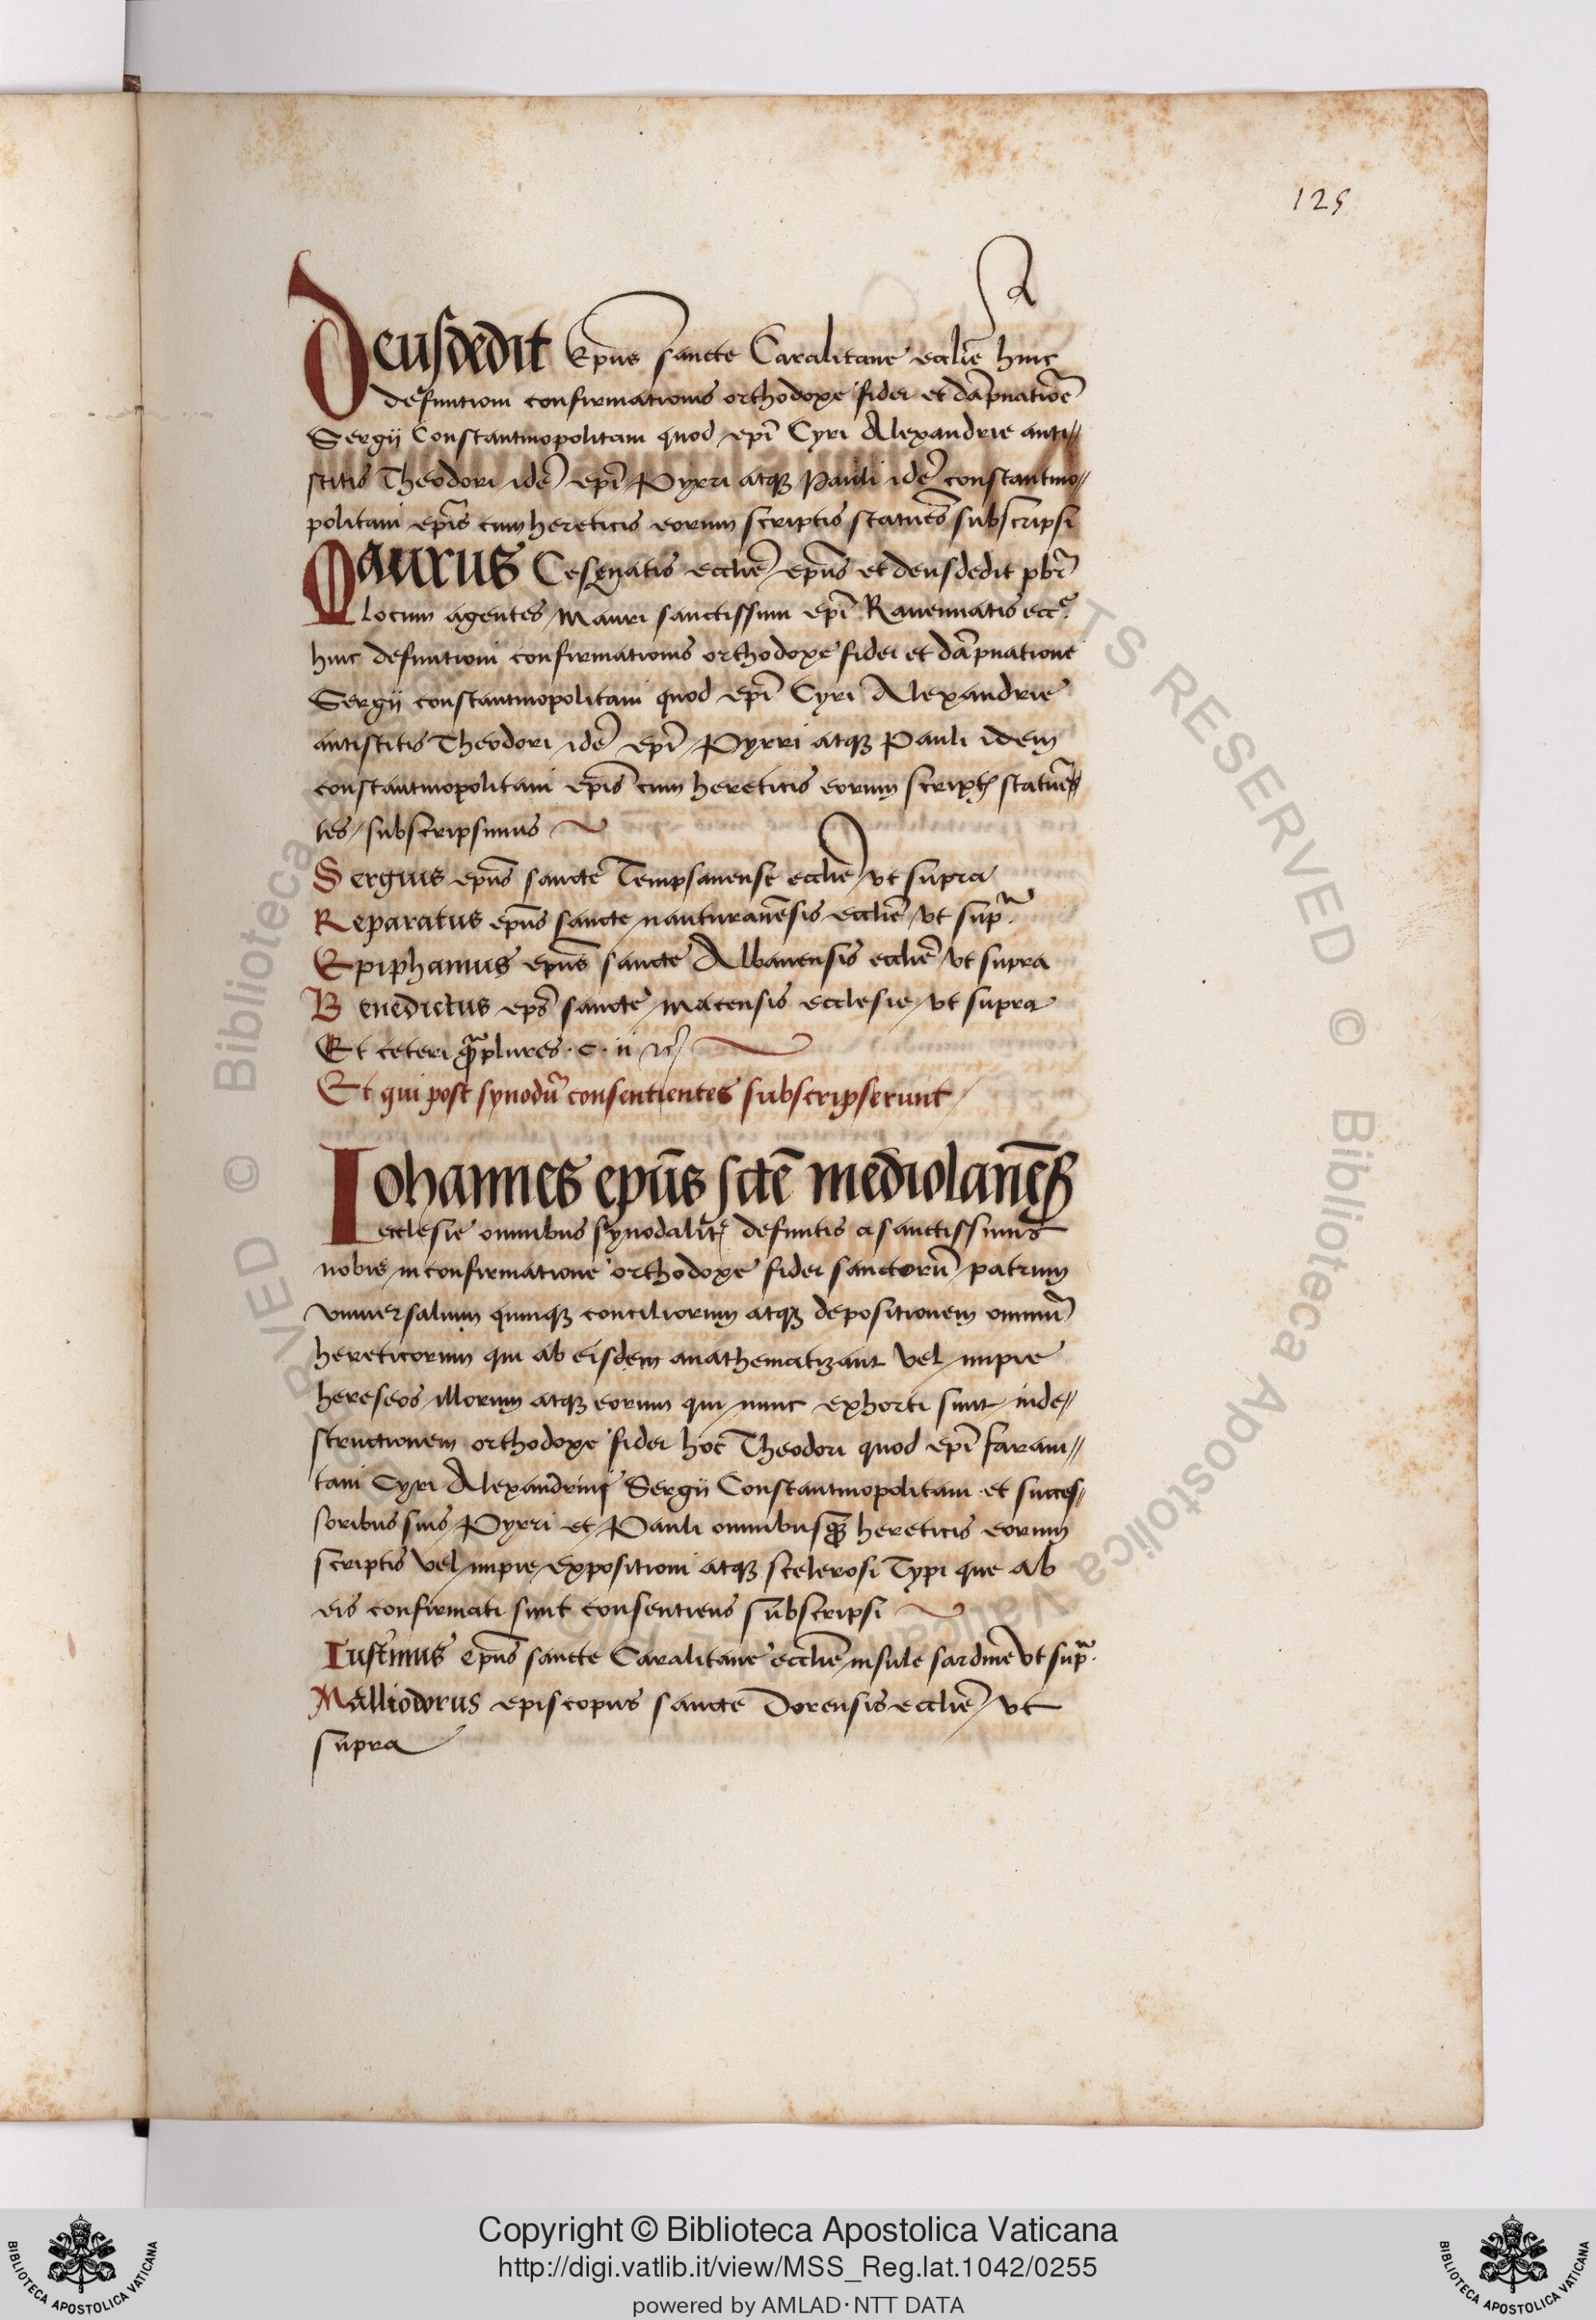 125
Deusdedit Ep̄us sancte Caralitane eccłie huic
defūntioni confirmationis orthodoxe fidei et dāpnatiōe
Sergij Constantinopolitani quod ep̄i Cyri Alexandrie anti//
stitis Theodori idē ep̄i Pyrri atqꝫ Pauli idē constantino//
politani ep̄is cum hereticis eorum scriptis statuēs subscripsi
Maurus Cesenatis eccłie ep̄us et deusdedit pbr̄
locum agentes Mauri sanctissimi ep̄i Rauennatis ecce
huic defuntioni confirmationis orthodoxe fidei et dāpnatione
Sergij constantinopolitani quod ep̄i Cyri Alexandrie
antistitis Theodori idē ep̄i Pyrri atqꝫ Pauli idem
constantinopolitani ep̄is cum hereticis eorum scriptis statuē
tes subscripsimus
Sergius ep̄us sancte Tempsanense eccłie vt supra
Reparatus ep̄us sancte nanturanēsis eccłie vt supᵃ.
Epiphanius ep̄us sancte Albanensis eccłie vt supra
Benedictus ep̄s sancte Matensis ecclesie vt supra
Et ceteri plures . c . ii
Et qui post synodū consentientes subscripserunt
Iohannes ep̄us sc̄tē mediolanēs
ecclesie omnibus synodalit̄ defuntis a sanctissimis
nobis in confirmatione orthodoxe fidei sanctorū patrum
vniuersalium quinqꝫ conciliorum atqꝫ depositionem omniū
hereticorum qui ab eisdem anathematizant vel impie
hereseos illorum atqꝫ eorum qui nunc exhorti sunt inde//
structionem orthodoxe fidei hoc̄ Theodori quod ep̄i faram//
tani Cyri Alexandrini Sergij Constantinopolitani et succes//
soribus suis Pyrri et Pauli omnibusqꝫ hereticis eorum
scriptis vel impie expositioni atqꝫ scelerosi Typi que ab
eis confirmati sunt consentiens subscripsi
Iustinus ep̄us sancte Caralitane eccłie insule sardinie vt supᵃ.
Malliodorus episcopus sancte Dorensis eccłie vt
supra
© Biblioteca Apostolica Vaticana
RIGHTS RESERVED
Copyright © Biblioteca Apostolica Vaticana
http://digi.vatlib.it/view/MSS_Reg.lat.1042/0255
powered by AMLAD·NTT DATA
BIBLIOTECA APOSTOLICA VATICANA
BIBLIOTECA APOSTOLICA VATICANA